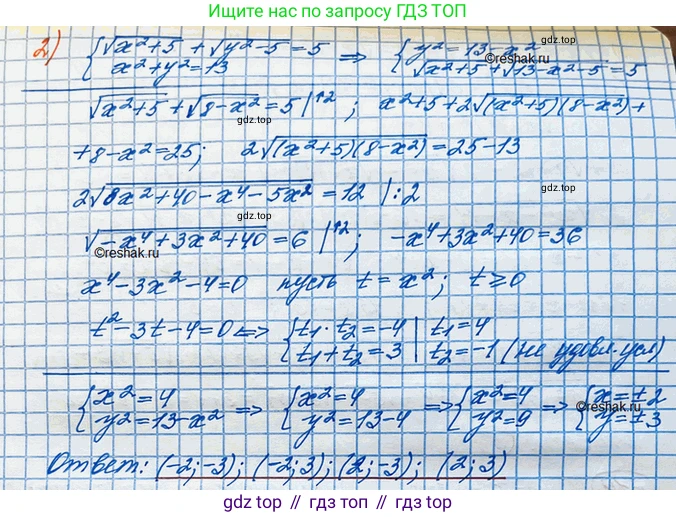 Ищите нас по запросу ГДЗ ТОП
2) {√x²+5 + √y²-5 = 5 ⇒ {y² = 13-x²
x²+y²=13 √x²+5 + √13-x²-5 = 5
©reshak.ru
√x²+5 + √8-x² = 5 |↑2 ; x²+5+2√(x²+5)(8-x²)+
gdz.top
+8-x²=25; 2√(x²+5)(8-x²) = 25-13
2√8x²+40-x⁴-5x² = 12 |:2
gdz.top
√-x⁴+3x²+40 = 6 |↑2 ; -x⁴+3x²+40=36
x⁴-3x²-4=0 пусть t = x²; t ≥ 0
t²-3t-4=0 ⇔ {t₁·t₂=-4 | t₁=4
t₁+t₂=3 | t₂=-1 (не удовл. усл)
{x²=4 ⇒ {x²=4 ⇒ {x²=4 ⇒ {x=±2
y²=13-x² y²=13-4 y²=9 y=±3
©reshak.ru
Ответ: (-2;-3); (-2;3); (2;-3); (2;3)
gdz top // гдз топ // gdz.top